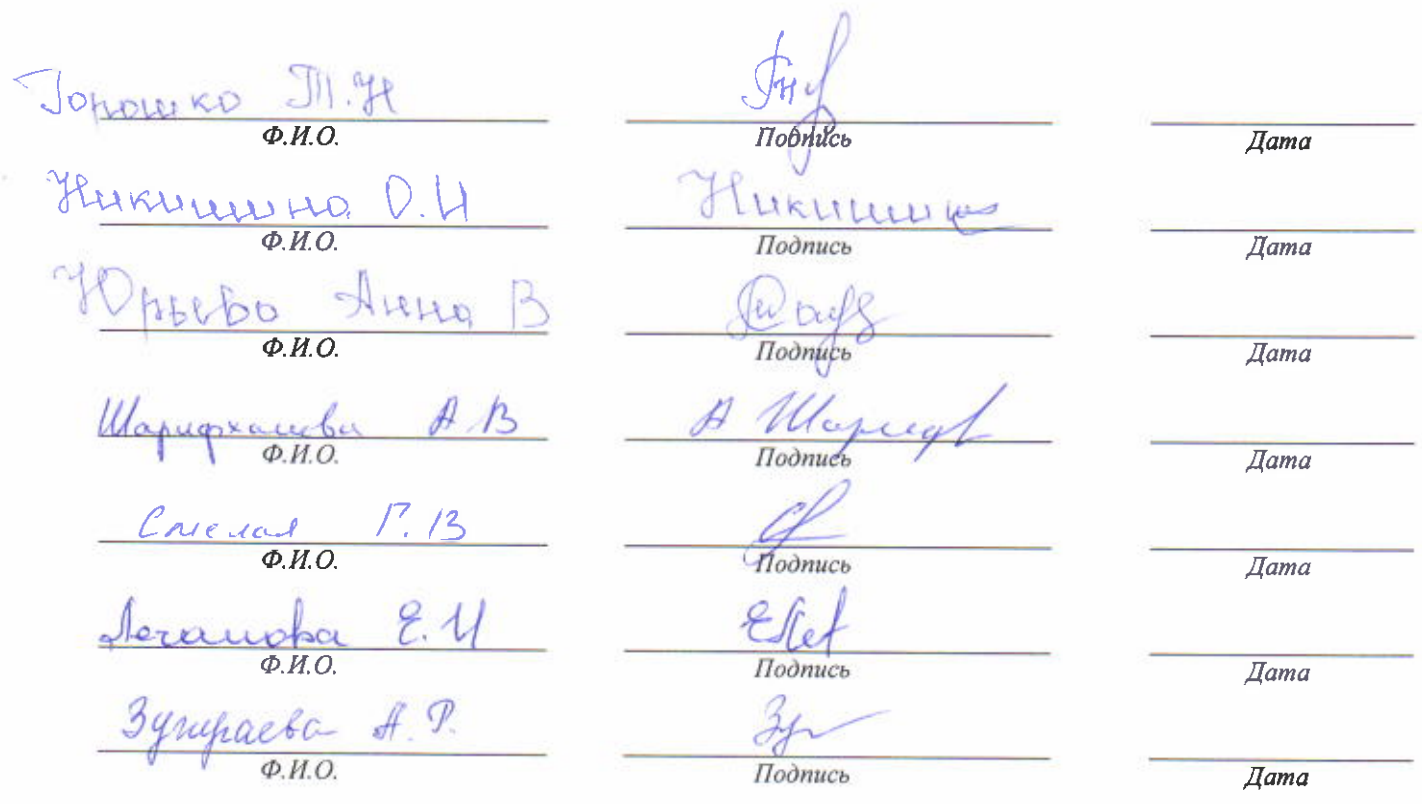 Горошко Т.Н
Ф.И.О. Подпись Дата
Никишина О.И Никишина
Ф.И.О. Подпись Дата
Юрьева Анна В
Ф.И.О. Подпись Дата
Шарифханова А В А Шариф
Ф.И.О. Подпись Дата
Смелая Г.В
Ф.И.О. Подпись Дата
Е.И
Ф.И.О. Подпись Дата
А.Р.
Ф.И.О. Подпись Дата